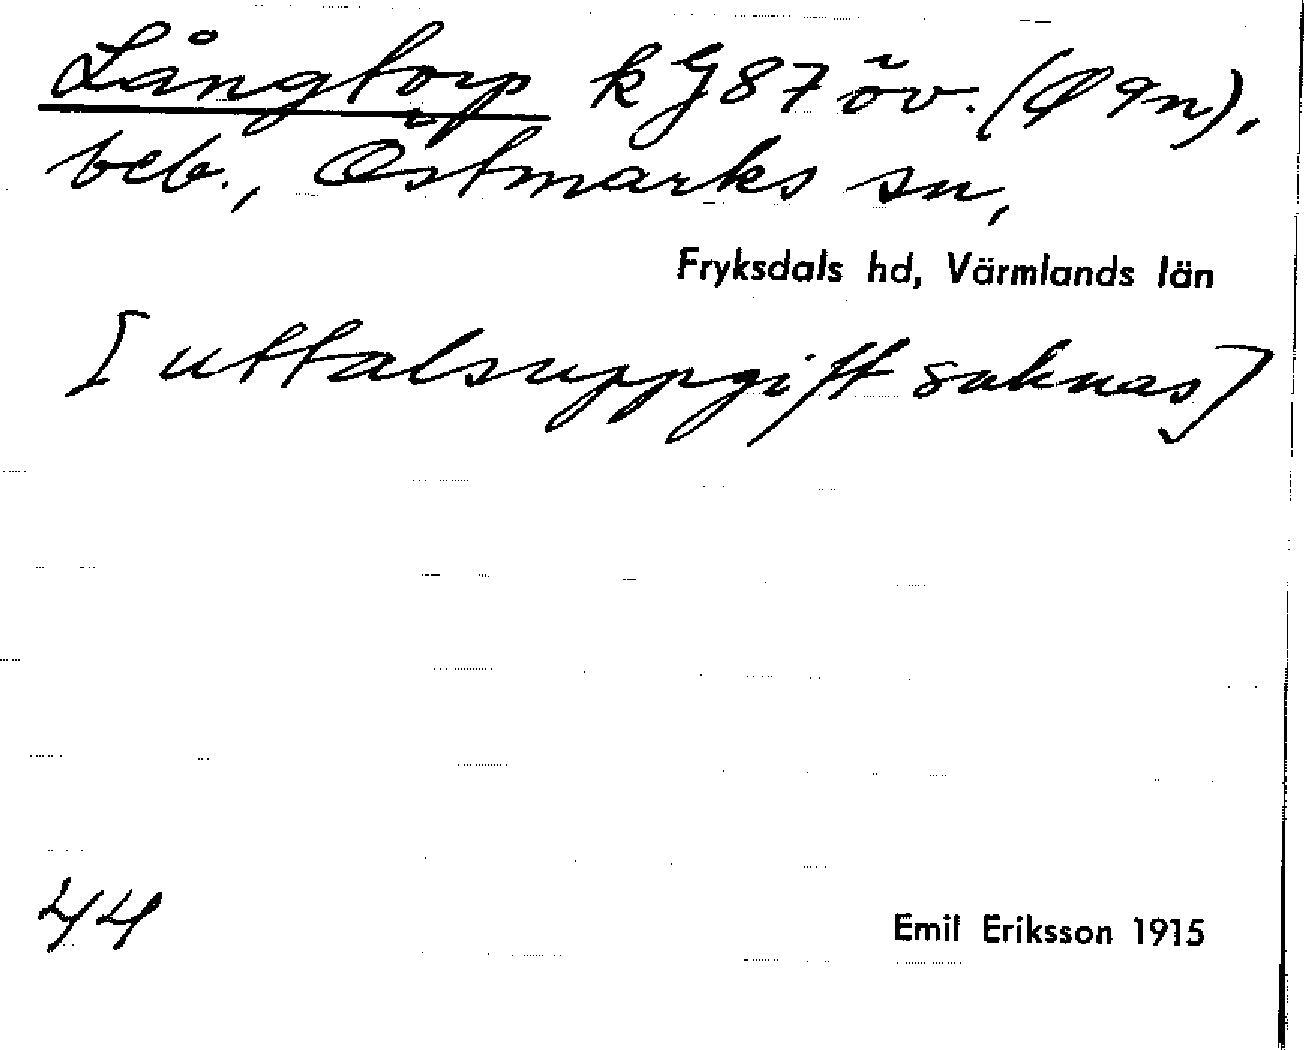 Långtorp kG87 öv. (Ø 9n),
beb., Östmarks sn,
Fryksdals hd, Värmlands län
[uttalsuppgift saknas]
44
Emil Eriksson 1915